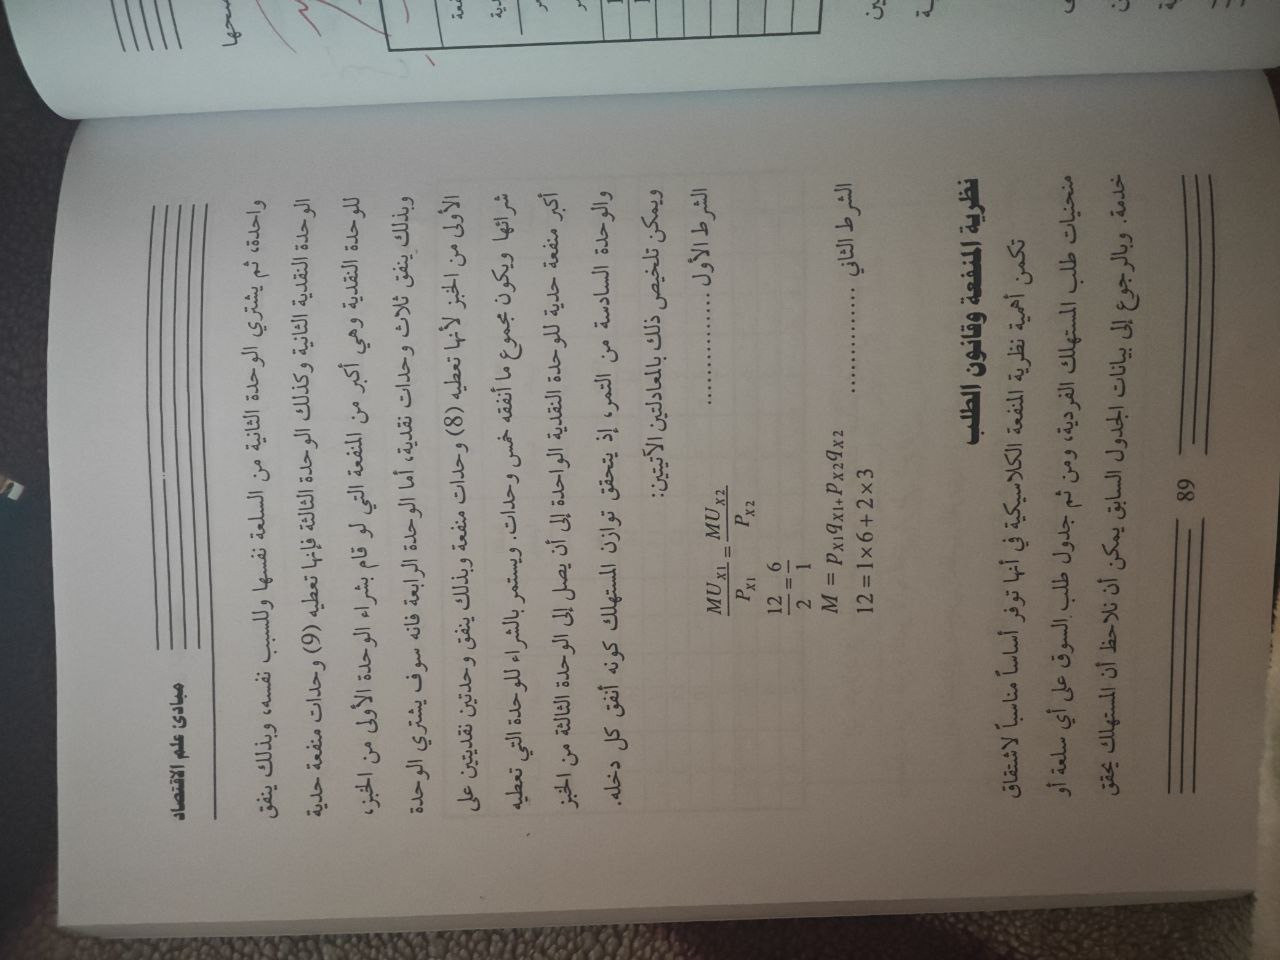 مبادئ علم الاقتصاد
واحدة، ثم يشتري الوحدة الثانية من السلعة نفسها وللسبب نفسه، وبذلك ينفق
الوحدة النقدية الثانية وكذلك الوحدة الثالثة فإنها تعطيه (9) وحدات منفعة حدية
للوحدة النقدية وهي أكبر من المنفعة التي لو قام بشراء الوحدة الأولى من الخبز،
وبذلك ينفق ثلاث وحدات نقدية، أما الوحدة الرابعة فانه سوف يشتري الوحدة
الأولى من الخبز لأنها تعطيه (8) وحدات منفعة وبذلك ينفق وحدتين نقديتين على
شرائها ويكون مجموع ما أنفقه خمس وحدات. ويستمر بالشراء للوحدة التي تعطيه
أكبر منفعة حدية للوحدة النقدية الواحدة إلى أن يصل إلى الوحدة الثالثة من الخبز
والوحدة السادسة من التمر، إذ يتحقق توازن المستهلك كونه أنفق كل دخله.
ويمكن تلخيص ذلك بالمعادلتين الآتيتين:
الشرط الأول ............... MU_X1/P_X1 = MU_X2/P_X2
12/2 = 6/1
الشرط الثاني .............. M = P_X1 q_X1 + P_X2 q_X2
12 = 1×6 + 2×3
نظرية المنفعة وقانون الطلب
تكمن أهمية نظرية المنفعة الكلاسيكية في أنها توفر أساساً مناسباً لاشتقاق
منحنيات طلب المستهلك الفردية، ومن ثم جدول طلب السوق على أي سلعة أو
خدمة. وبالرجوع إلى بيانات الجدول السابق يمكن أن نلاحظ أن المستهلك يحقق
89